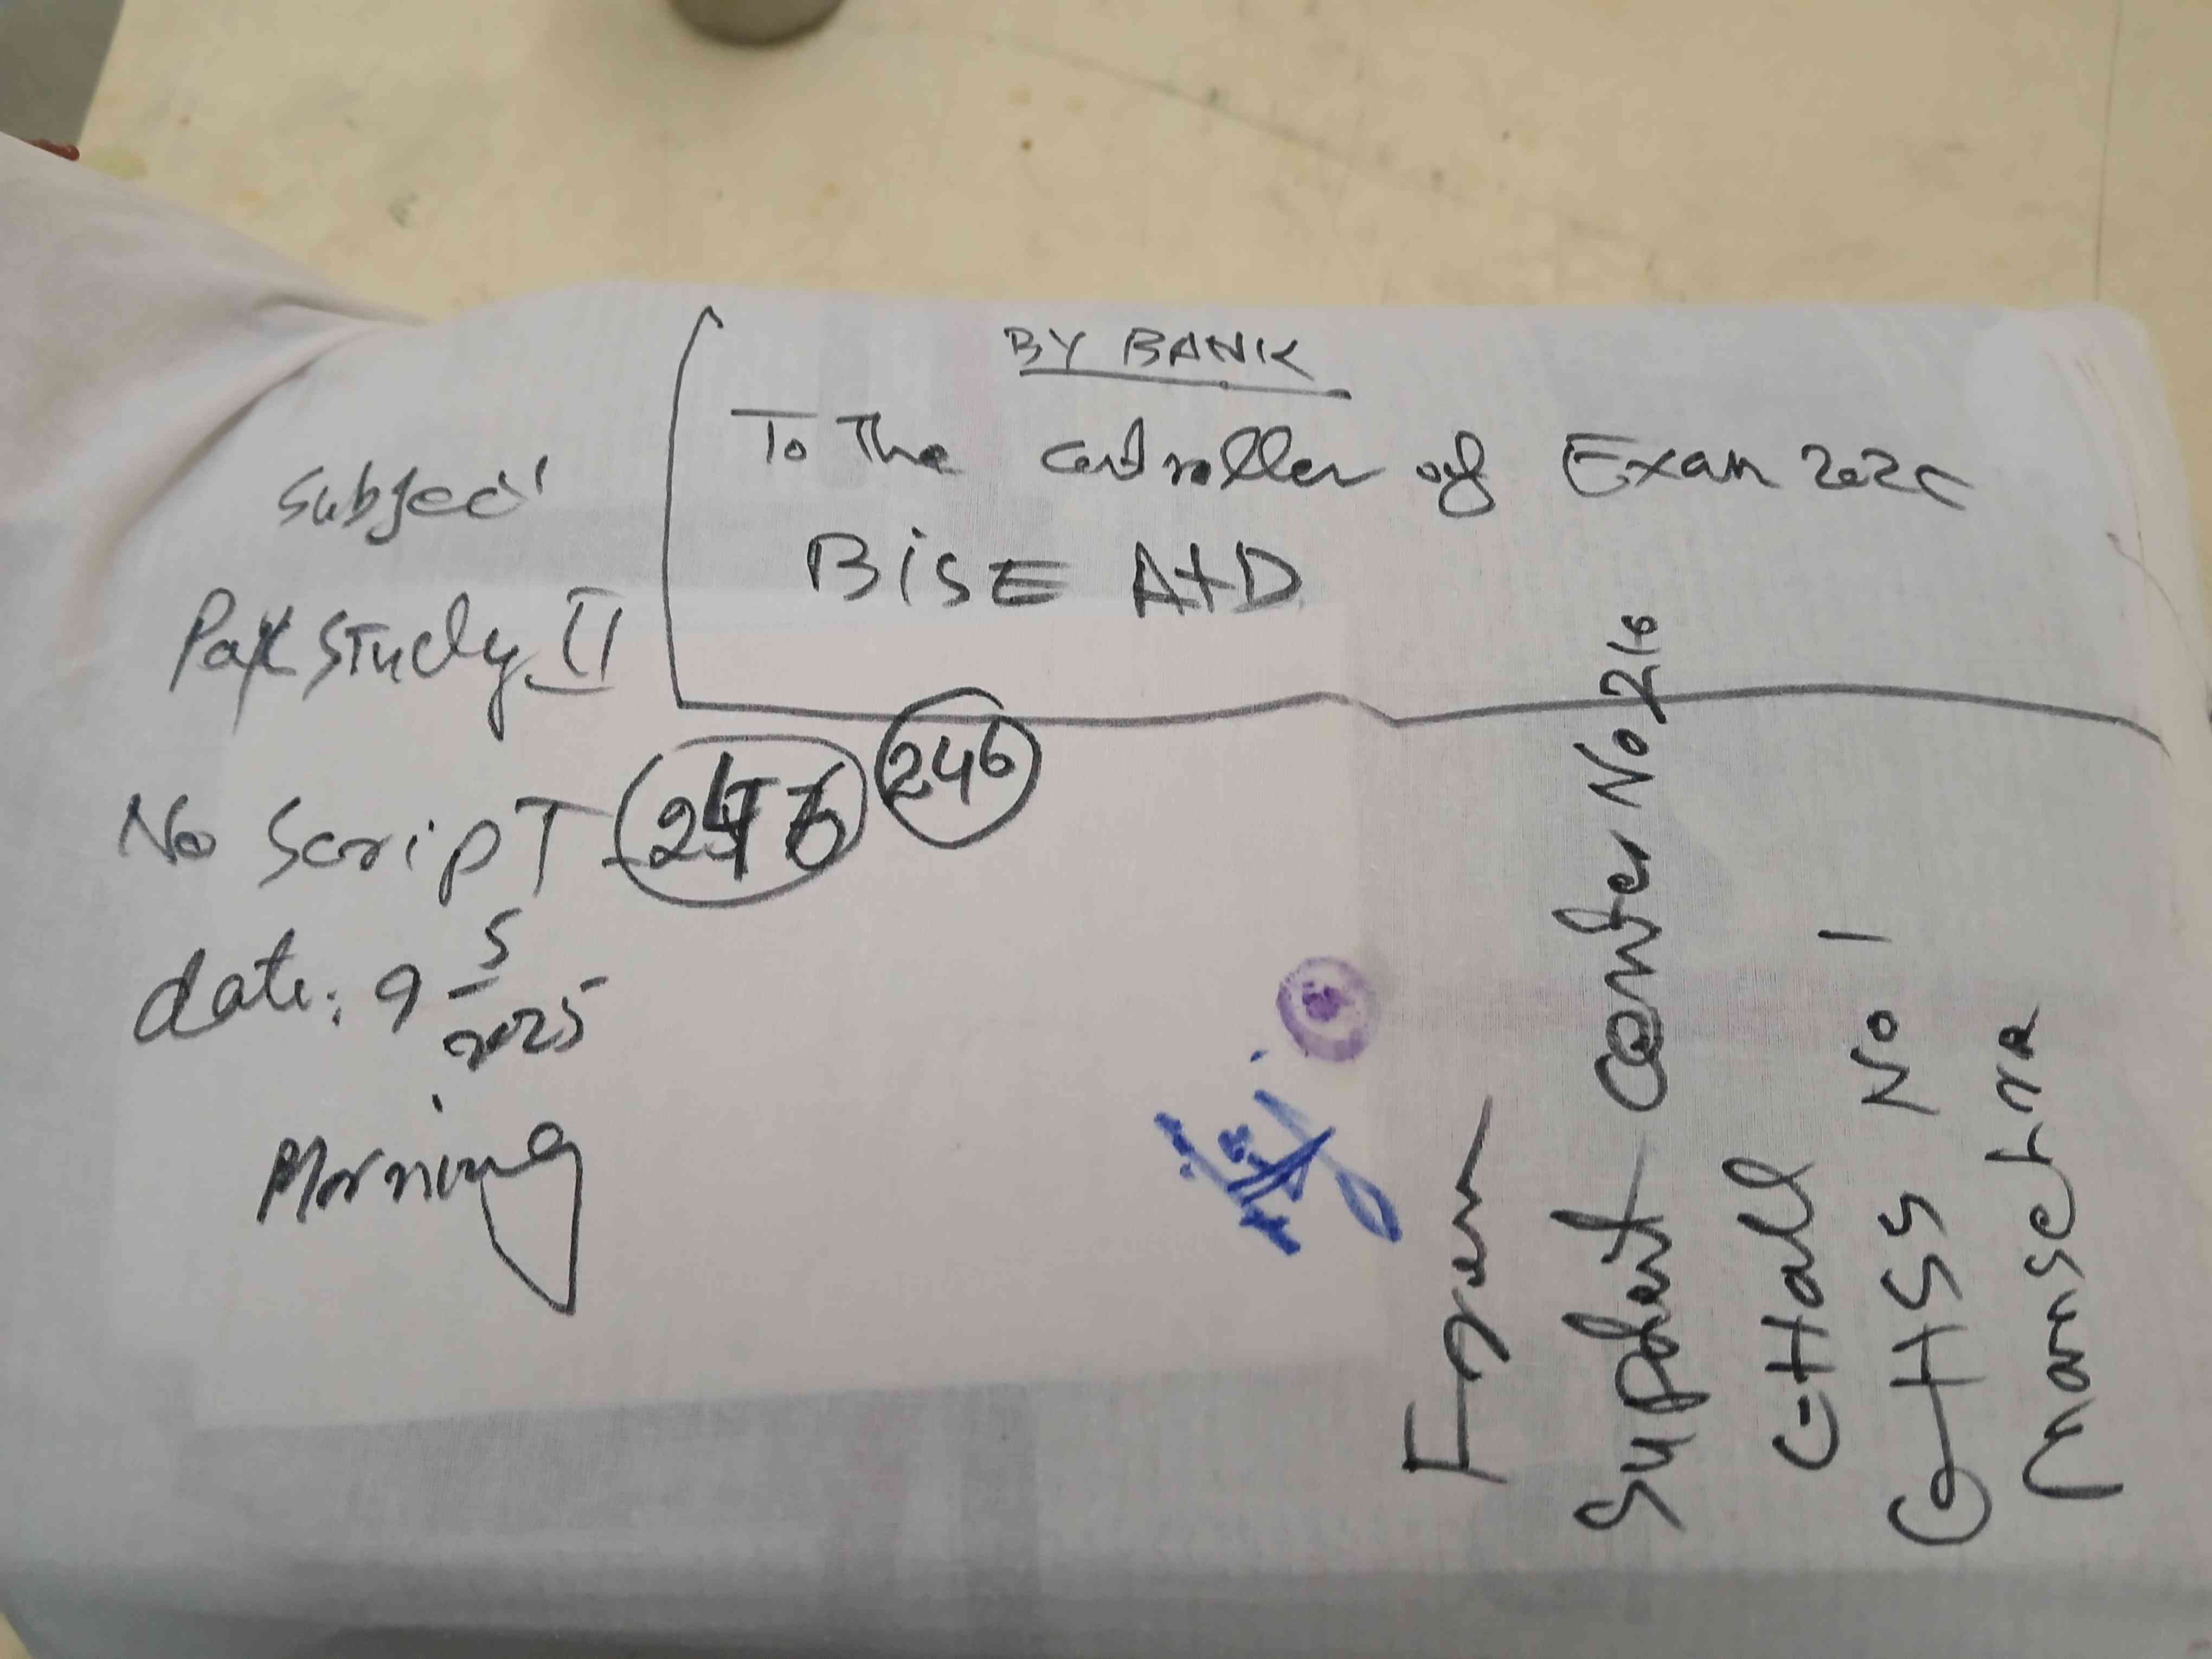 BY BANK
To The Controller of Exam 202
BiSE ATD
Subject
Pak Study II
No Script 246
date: 9 5/2025
Morning
From
Suptdent Center No 216
G-Hall
GHSS No 1
Mansehra